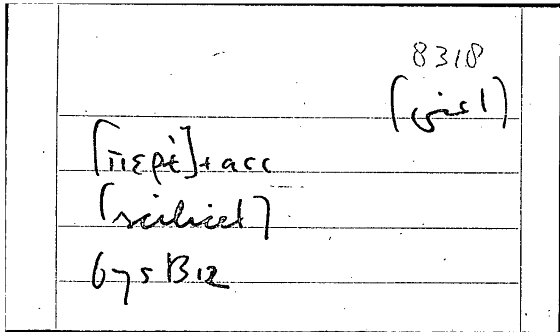 8318
[περὶ] + acc
[scilicet]
675B12